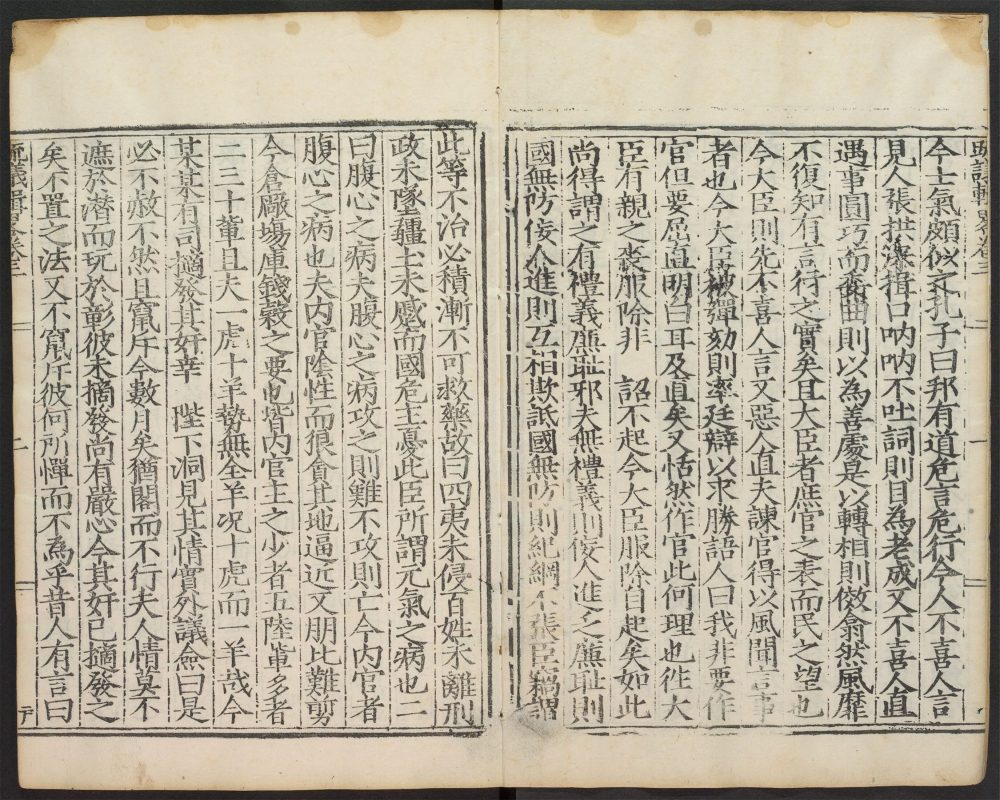 疏議輯畧卷三 一
今士氣頗似之孔子曰邦有道危言危行今人不喜人言
見人張拱深揖口吶吶不吐詞則目為老成又不喜人直
遇事圓巧而委曲則以為善處是以轉相則傚翕然風靡
不復知有言行之實矣且大臣者庶官之表而民之望也
今大臣則先不喜人言又惡人直夫諫官得以風聞言事
者也今大臣被彈劾則率廷辯以求勝語人曰我非要作
官但要屈直明白耳及直矣又恬然作官此何理也徃大
臣有親之喪服除非 詔不起今大臣服除自起矣如此
尚得謂之有禮義廉耻邪夫無禮義則佞人進之廉耻則
國無防佞人進則互相欺詆國無防則紀綱不張臣竊謂
此等不治必積漸不可救藥故曰四夷未侵百姓未離刑
政未隊疆土未慼而國危主憂此臣所謂元氣之病也二
曰腹心之病夫腹心之病攻之則難不攻則亡今内官者
腹心之病也夫内官陰性而狠貪其地逼近又朋比難剪
今倉廠塲庫錢糓之要也皆内官主之少者五陸軰多者
二三十軰且夫一虎十羊勢無全羊况十虎而一羊哉今
某某有司擿發其奸幸 陛下洞見其情實外議僉曰是
必不赦不然且竄斥今數月矣猶閣而不行夫人情莫不
遮於潜而玩於彰彼未擿發尚有嚴心今其奸已擿發之
矣不置之法又不竄斥彼何所憚而不為乎昔人有言曰
疏議輯畧卷三 二